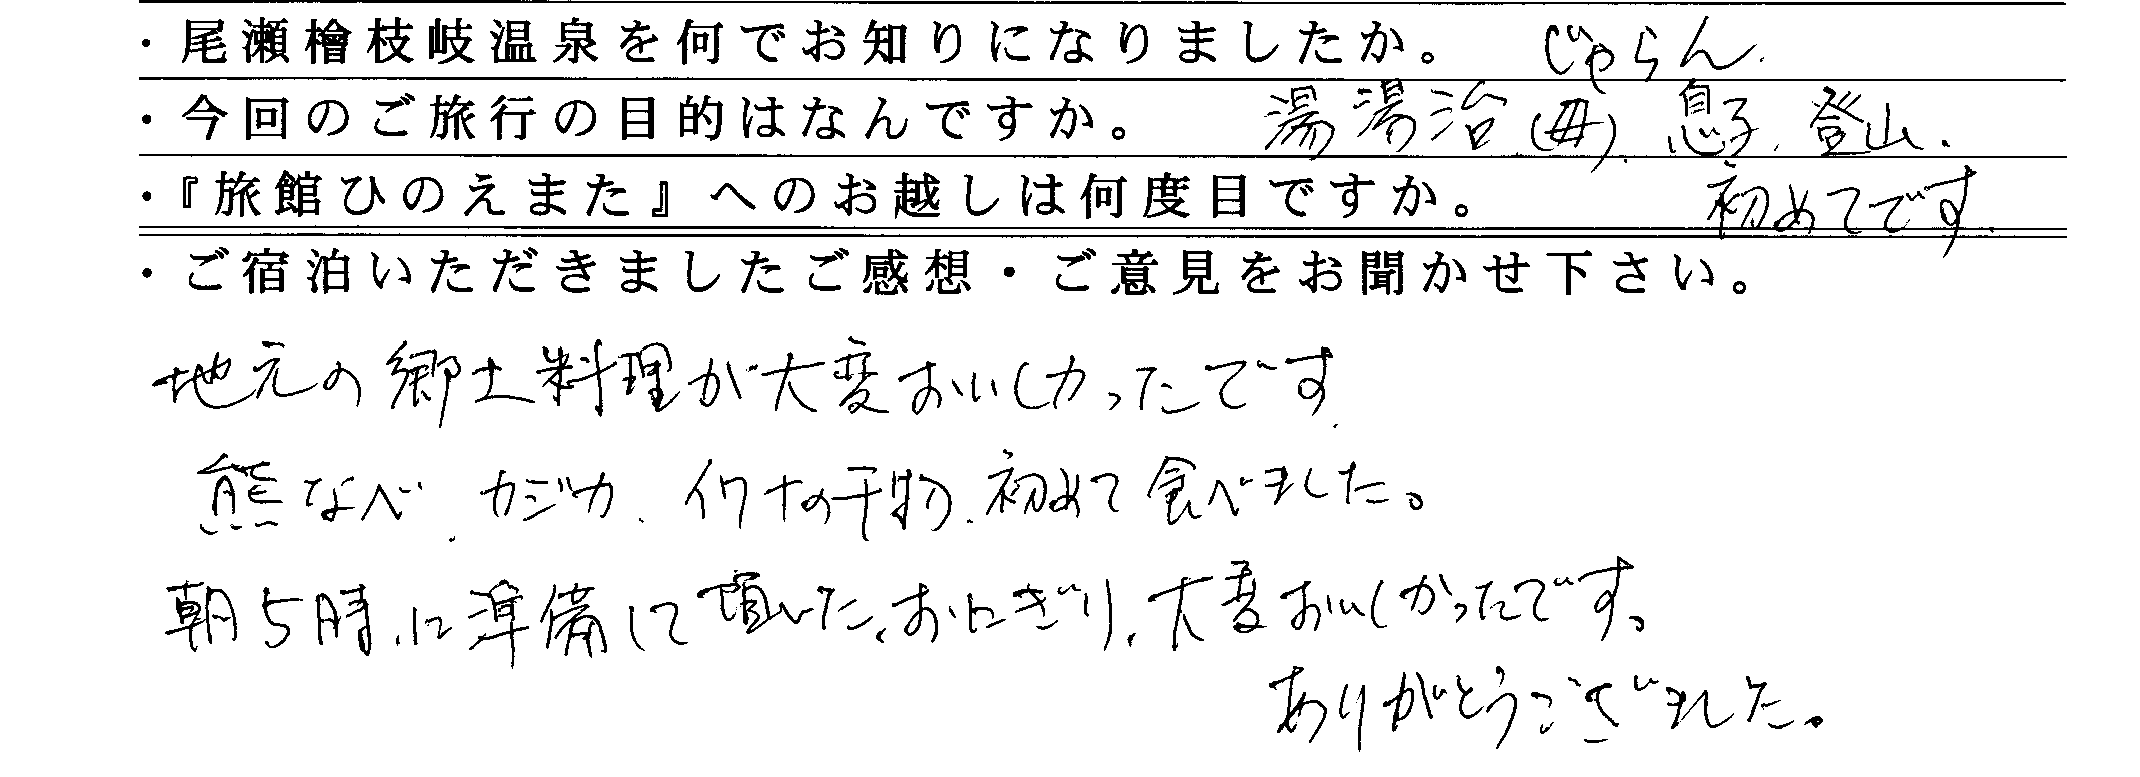 ・尾瀬檜枝岐温泉を何でお知りになりましたか。 じゃらん.
・今回のご旅行の目的はなんですか。 湯湯治(母)、息子、登山.
・『旅館ひのえまた』へのお越しは何度目ですか。 初めてです.
・ご宿泊いただきましたご感想・ご意見をお聞かせ下さい。
地元の郷土料理が大変おいしかったです.
熊なべ、カジカ、イワナの干物、初めて食べました。
朝5時に準備して頂いた、おにぎり、大変おいしかったです。
ありがとうございました。